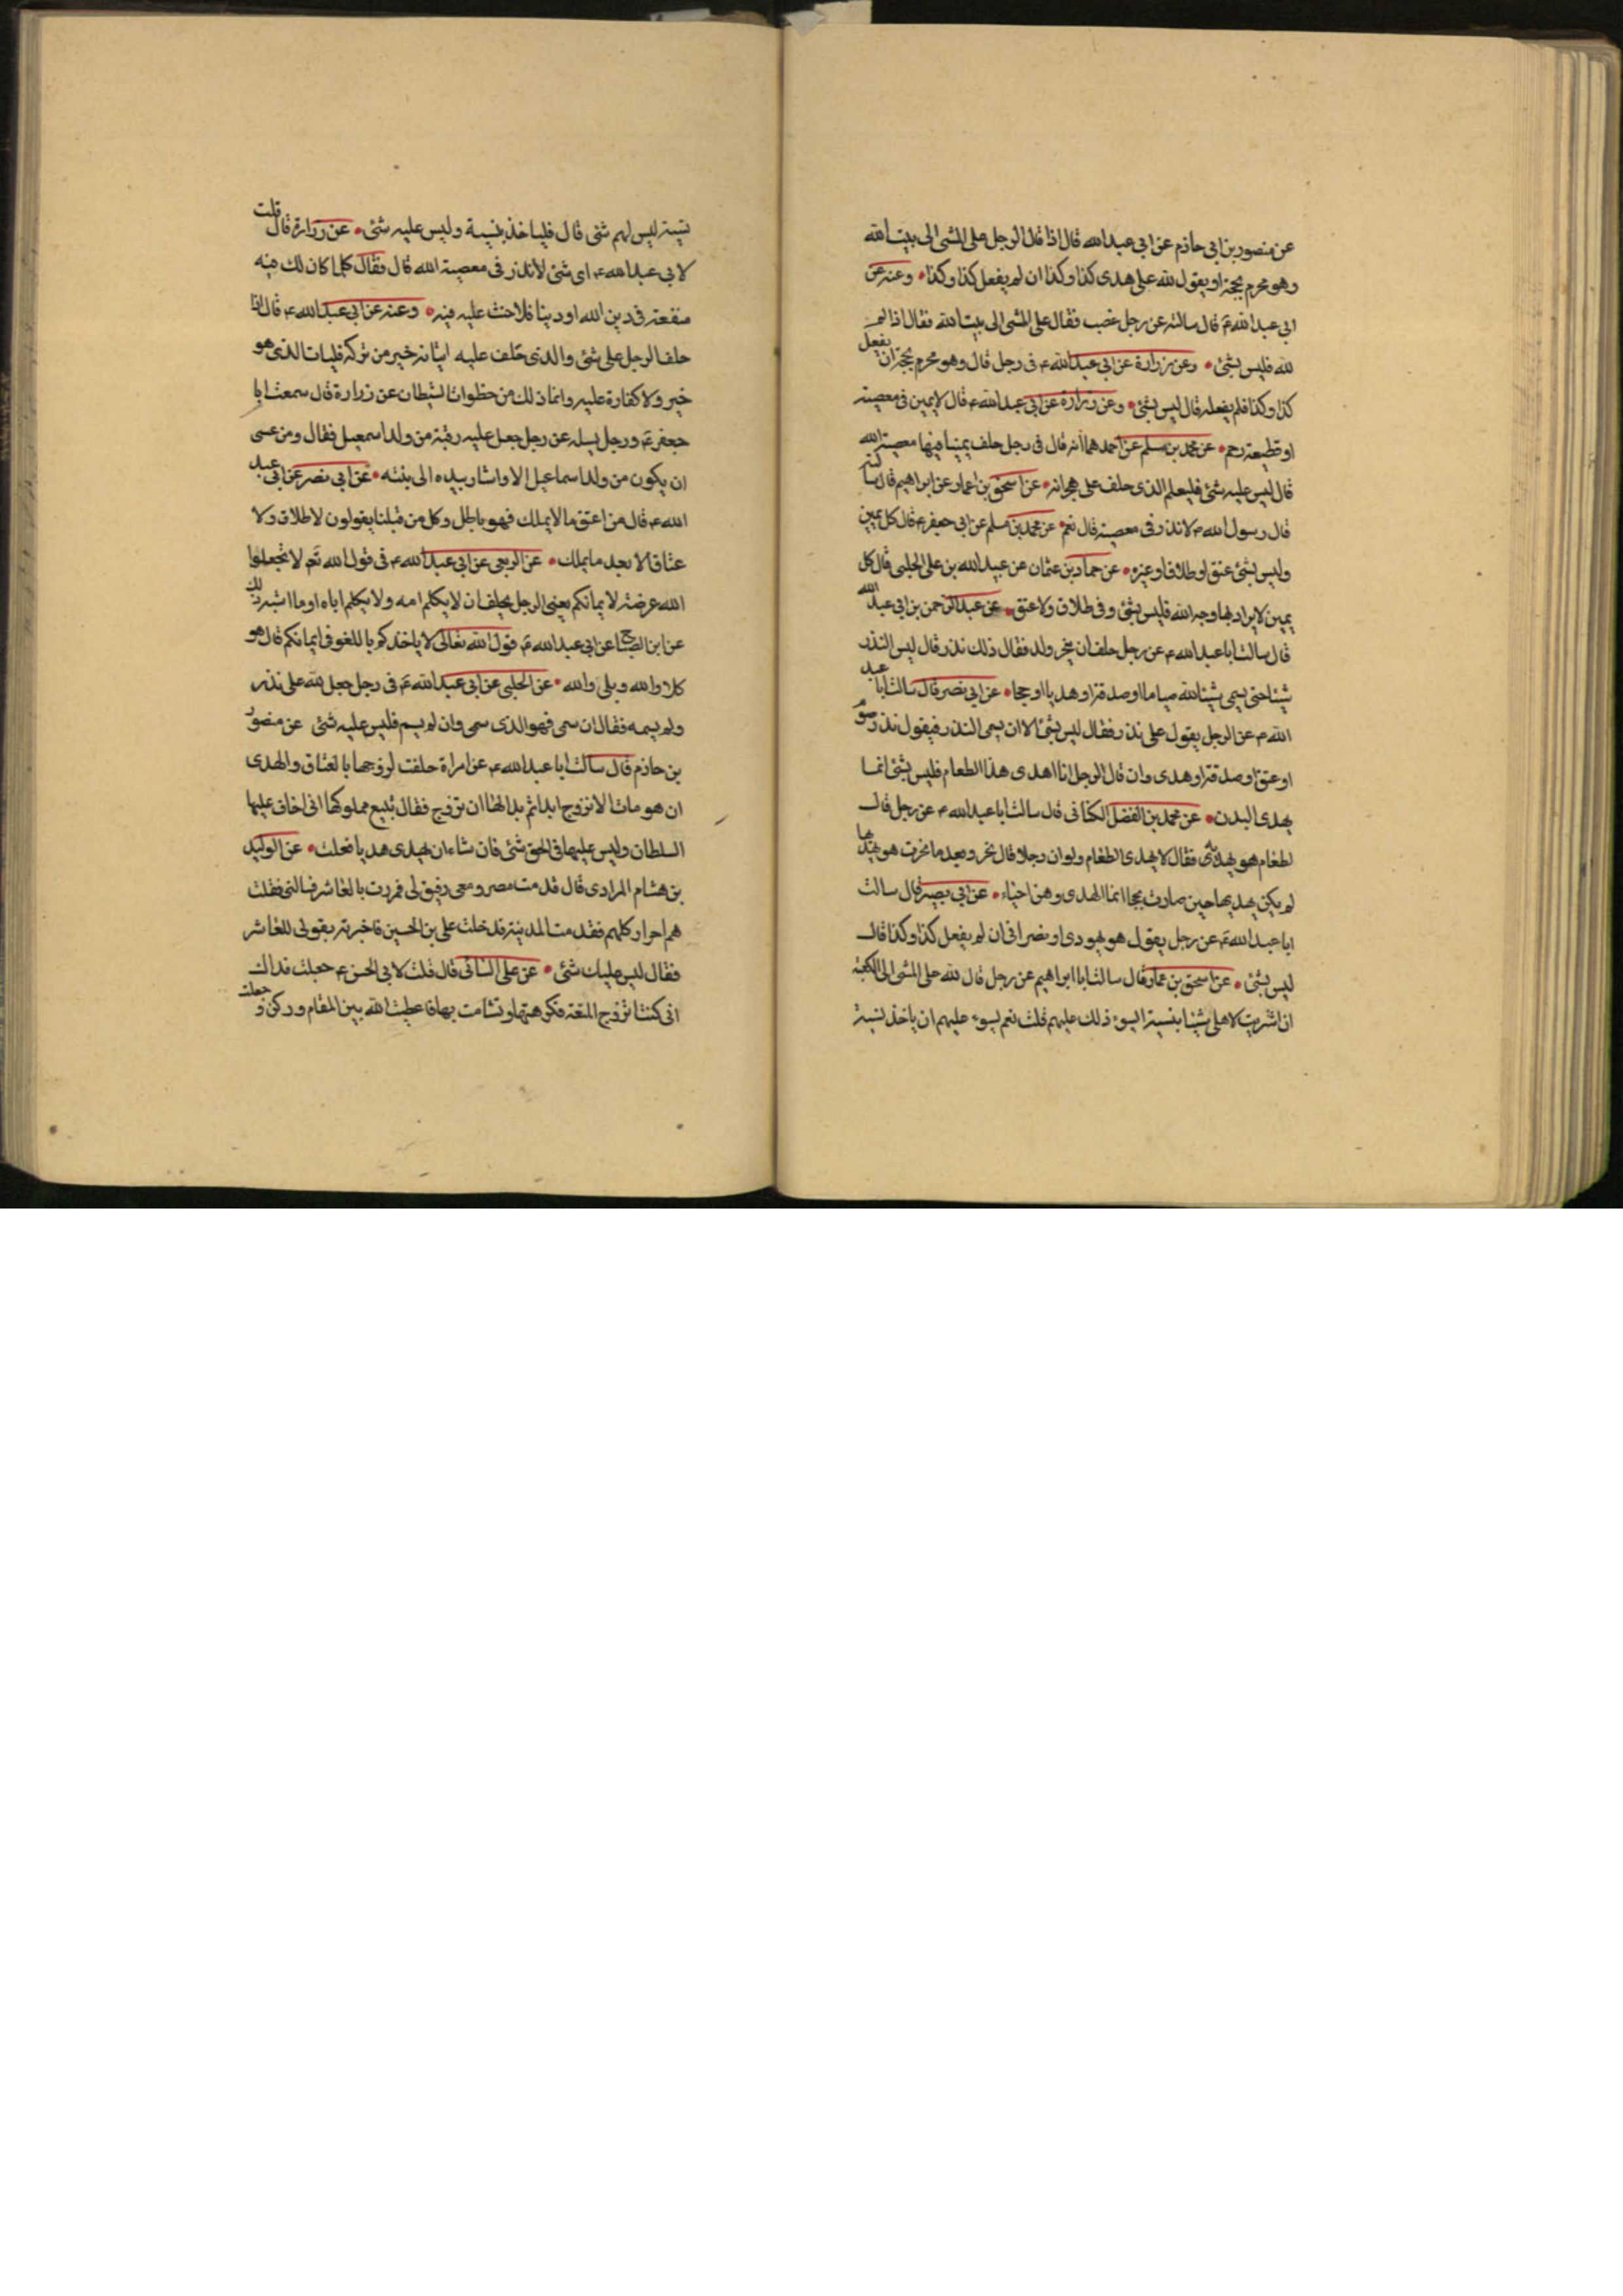 عن منصور بن ابى حازم عن ابى عبد الله قال اذا قال الرجل على المشى الى بيت الله
وهو محرم بحجة او يقول لله على هدى كذا وكذا ان لم يفعل كذا وكذا وعنه عن
ابى عبد الله ع قال سالته عن رجل غضب فقال على المشى الى بيت الله فقال اذا لم
لله فليس بشئ وعن زرارة عن ابى عبد الله ع فى رجل قال وهو محرم بحجة ان يفعل
كذا وكذا فلم يفعله قال ليس بشئ وعن زرارة عن ابى عبد الله ع قال لا يمين فى معصية
او قطيعة رحم عن محمد بن مسلم عن احدهما انه قال فى رجل حلف يمينا فيها معصية الله
قال ليس عليه شئ فليعلم الذى حلف على هجرانه عن اسحق بن عمار عن ابراهيم قال سالته
قال رسول الله ص لا نذر فى معصية قال نعم عن محمد بن مسلم عن ابى جعفر ع قال كل يمين
وليس بشئ عتق او طلاق او غيره عن حماد بن عثمان عن عبيد الله بن على الحلبى قال كل
يمين لا يراد بها وجه الله فليس بشئ وفى طلاق ولا عتق عن عبد الرحمن بن ابى عبد الله
قال سالت ابا عبد الله ع عن رجل حلف ان ينحر ولده فقال ذلك نذر قال ليس النذر
شيئا حتى يسمى شيئا لله صياما او صدقة او هديا او حجا عن ابى نصر قال سالت ابا عبد
الله ع عن الرجل يقول على نذر فقال ليس بشئ الا ان يسمى النذر فيقول نذر صوم
او عتق او صدقة او هدى وان قال الرجل انا اهدى هذا الطعام فليس بشئ انما
يهدى البدن عن محمد بن الفضل الكنانى قال سالت ابا عبد الله ع عن رجل قال
لطعام هو يهديه فقال لا يهدى الطعام ولو ان رجلا قال نحر وبعد ما نحرت هو يهديها
لم يكن يهديها حين صارت لحما انما الهدى وهن احياء عن ابى بصير قال سالت
ابا عبد الله ع عن رجل يقول هو يهودى او نصرانى ان لم يفعل كذا وكذا قال
ليس بشئ عن اسحق بن عمار قال سالت ابا ابراهيم عن رجل قال لله على المشى الى الكعبة
ان اشتريت لاهلى شيئا بنسية ايسوء ذلك عليهم قلت نعم يسوء عليهم ان ياخذ نسية
نسية ليس لهم شئ قال فلياخذ بنسية وليس عليه شئ عن زرارة قال قلت
لابى عبد الله ع اى شئ لا نذر فى معصية الله قال فقال كلما كان لك فيه
منفعة فى دين الله او دينا فلا حنث عليه فيه وعنه عن ابى عبد الله ع قال اذا
حلف الرجل على شئ والذى حلف عليه اتيانه خير من تركه فليات الذى هو
خير ولا كفارة عليه وانما ذلك من خطوات الشيطان عن زرارة قال سمعت ابا
جعفر ع ورجل يسله عن رجل جعل عليه رقبة من ولد اسمعيل فقال ومن عسى
ان يكون من ولد اسماعيل الا واشار بيده الى بنته عن ابى نصر عن ابى عبد
الله ع قال من اعتق ما لا يملك فهو باطل وكل من قبلنا يقولون لا طلاق ولا
عتاق الا بعد ما يملك عن الربعى عن ابى عبد الله ع فى قول الله تع لا تجعلوا
الله عرضة لايمانكم يعنى الرجل يحلف ان لا يكلم امه ولا يكلم اباه او ما اشبه ذلك
عن ابن الصباح عن ابى عبد الله ع قول الله تعالى لا ياخذكم باللغو فى ايمانكم قال هو
كلا والله وبلى والله عن الحلبى عن ابى عبد الله ع فى رجل جعل لله على نذر
ولم يسمه فقال ان سمى فهو الذى سمى وان لم يسم فليس عليه شئ عن منصور
بن حازم قال سالت ابا عبد الله ع عن امراة حلفت لزوجها بالعتاق والهدى
ان هو مات الا تزوج ابدا ثم بدا لها ان تزوج فقال تبيع مملوكها انى اخاف عليها
السلطان وليس عليها فى الحق شئ فان شاءان يهدى هديا فعلت عن الوليد
بن هشام المرادى قال قدمت مصر ومعى رفيق لى فمررت بالعاشر فسالنى فقلت
هم احرار كلهم فقدمت المدينة فدخلت على بن الحسين فاخبرته بقولى للعاشر
فقال ليس عليك شئ عن على السائى قال قلت لابى الحسن ع جعلت فداك
انى كنت اتزوج المتعة فكرهتها وتشامت بها فاعطيت الله بين المقام وركن و جعلت